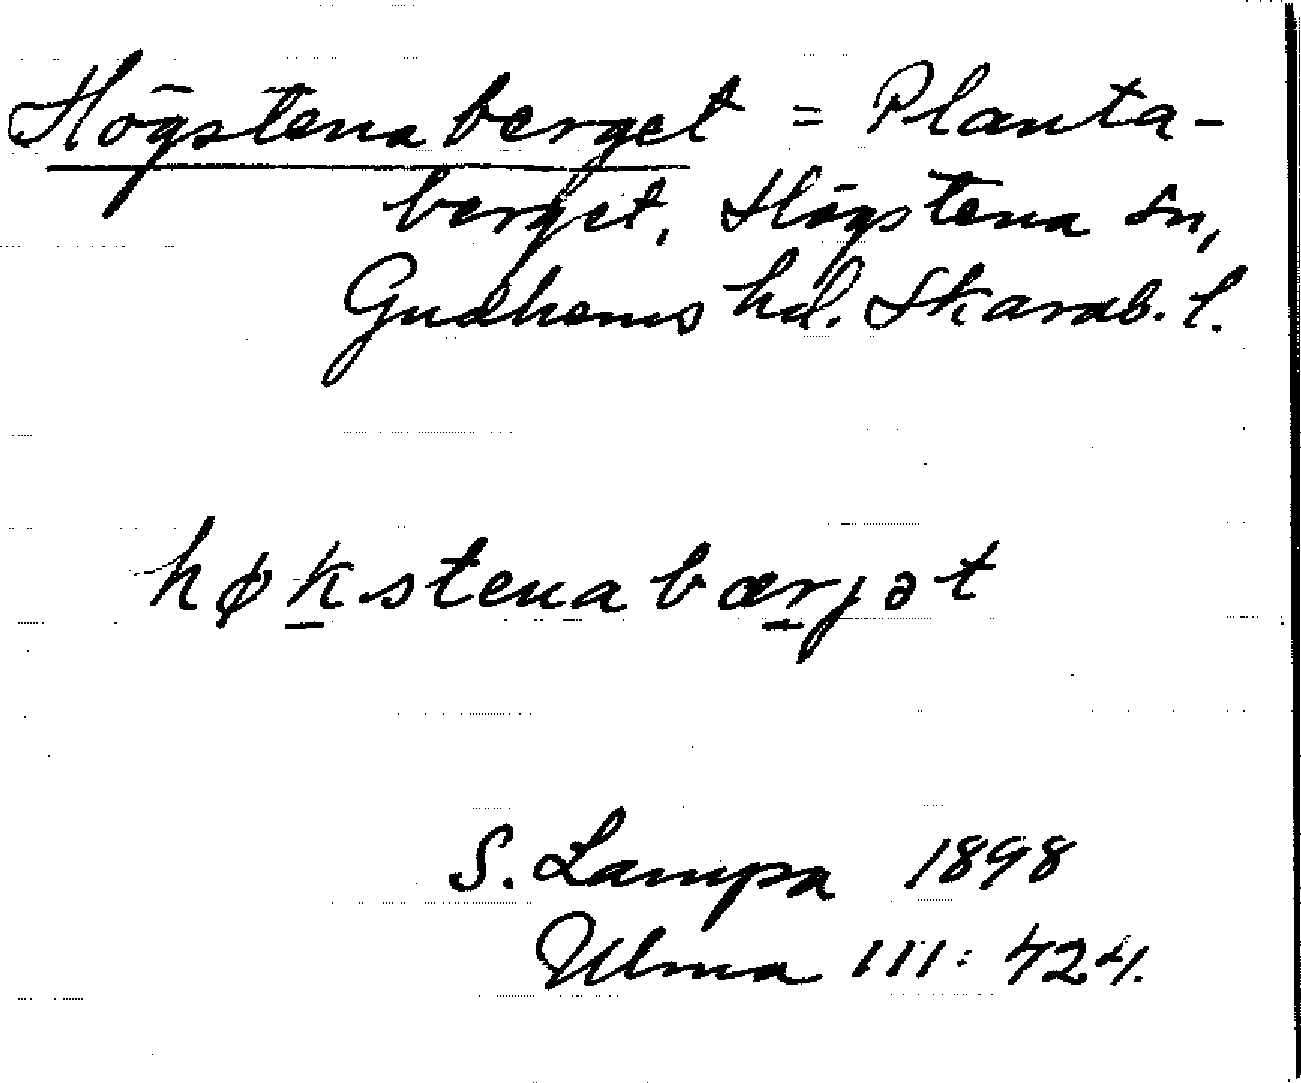 Högstena berget = Planta-
berget, Högstena sn,
Gudhems hd. Skarab. l.
høkstenabærjət
S. Lampa 1898
Ulma 111: 424.